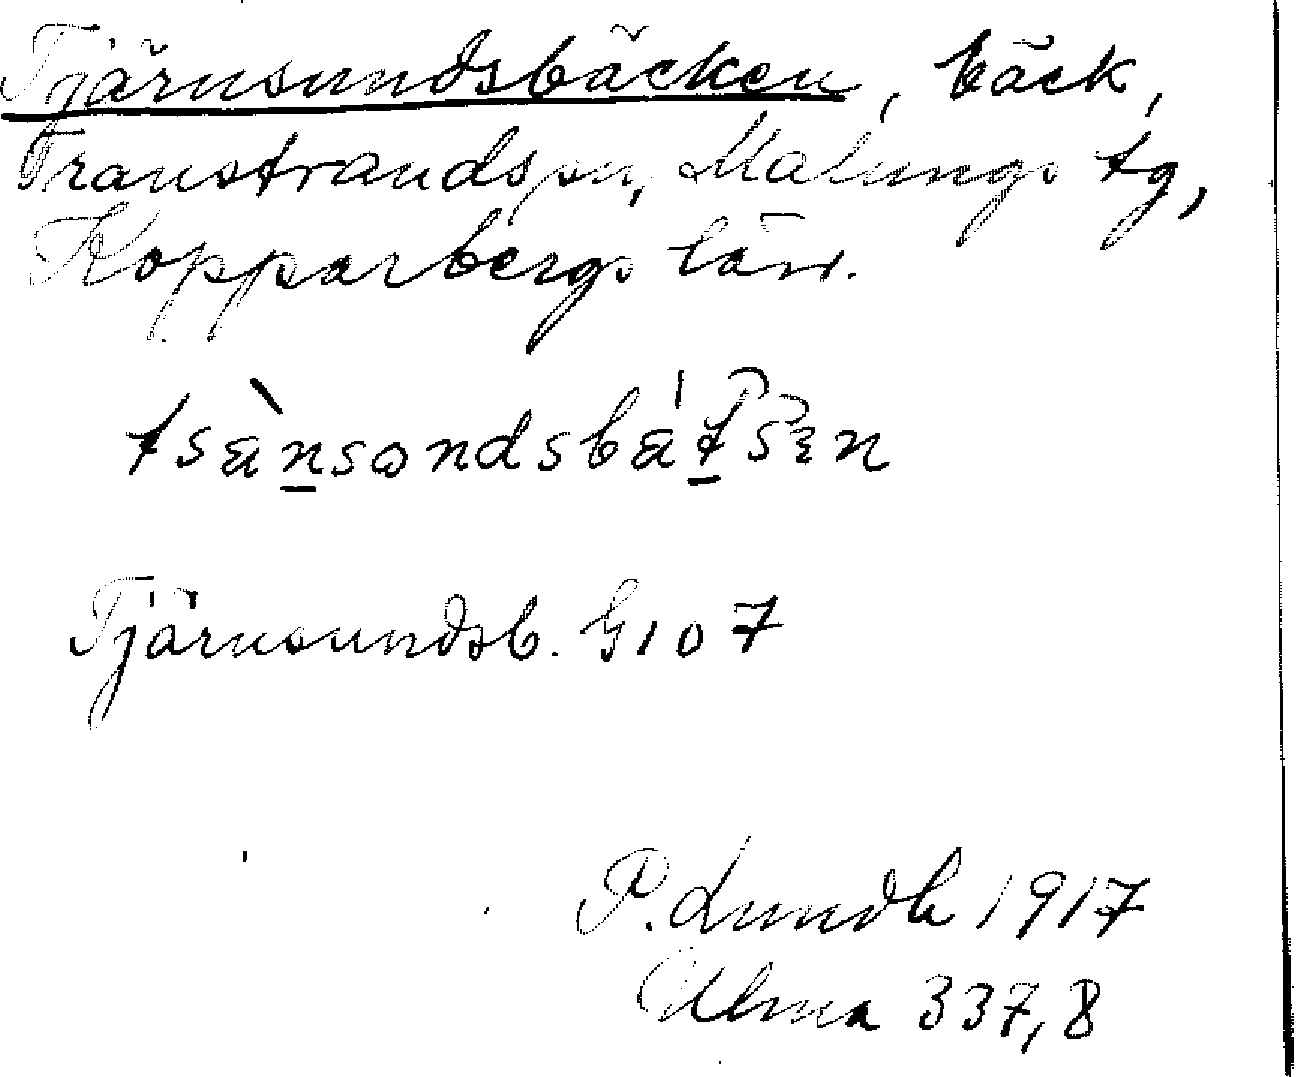 Tjärnsundsbäcken, bäck,
Transtrands sn, Malungs tg,
Kopparbergs län.
tsä̀nsondsbä́tsεn
Tjärnsundsb. G 107
P. Lundh 1917
Ulma 337,8